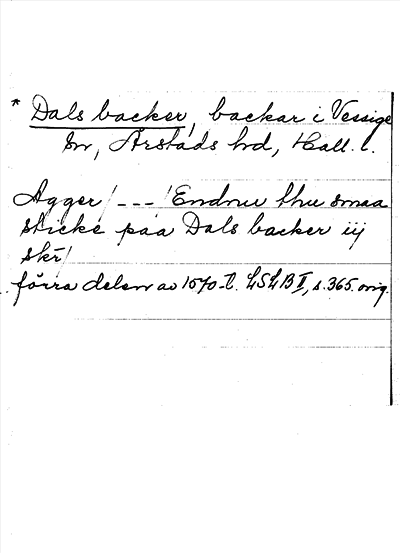 * Dals backer, backar i Vessige
sn, Årstads hd, Hall. l.
Agger/ - - - /Endnu thu smaa
sticke paa Dals backer iij
skr/
förra delen av 1570-t. LSLB II, s. 365. orig.